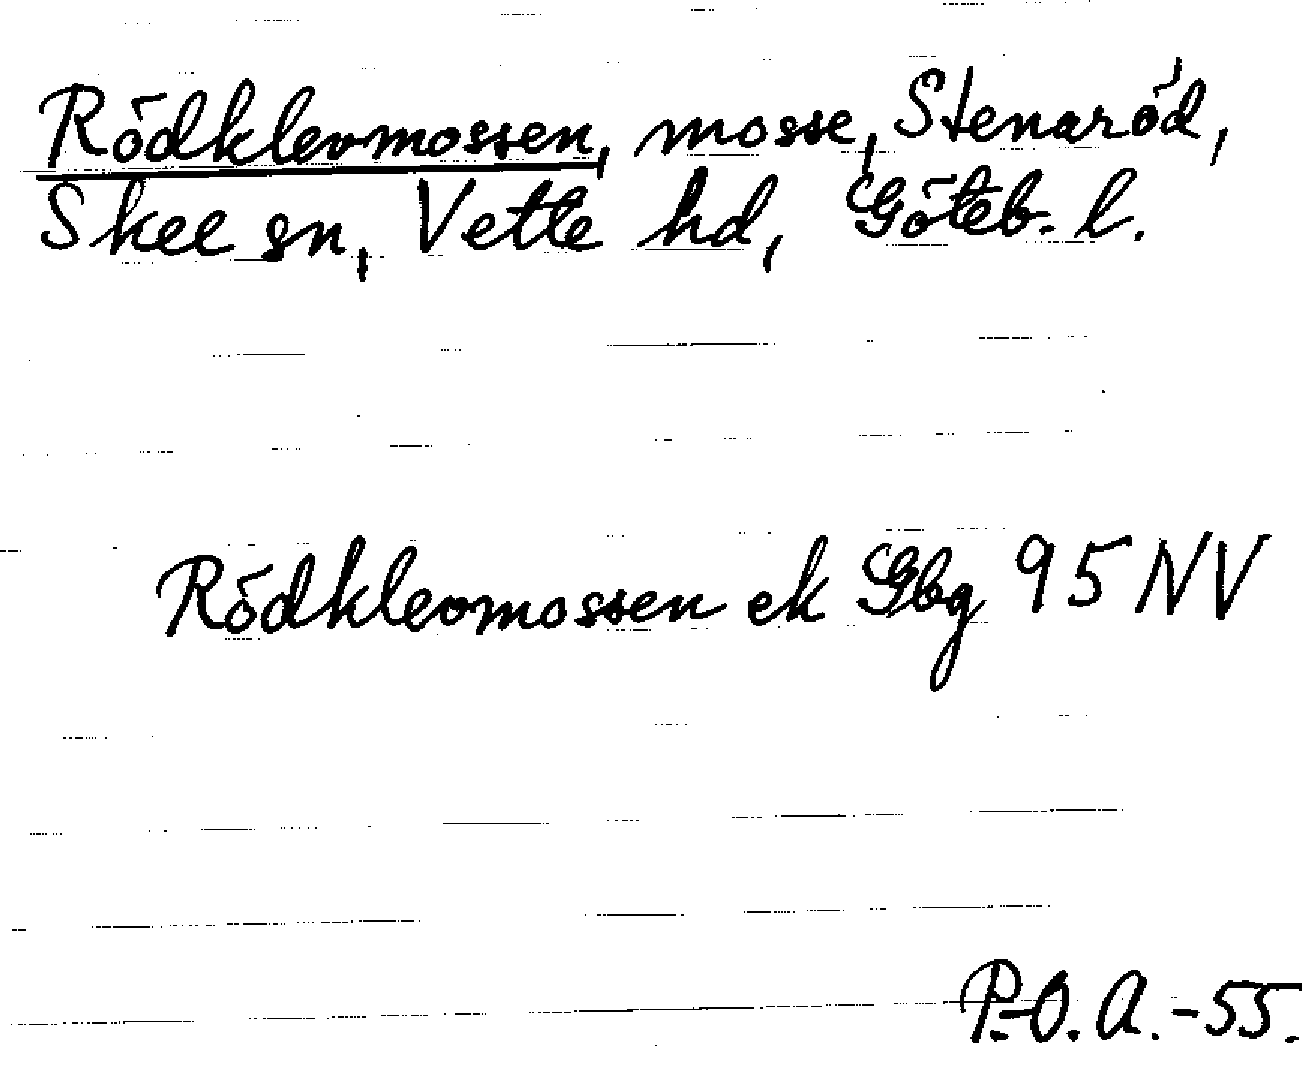 Rödklevmossen, mosse, Stenaröd,
Skee sn, Vette hd, Göteb. l.
Rödklevmossen ek Gbg 95 NV
P.-O. A. -55.